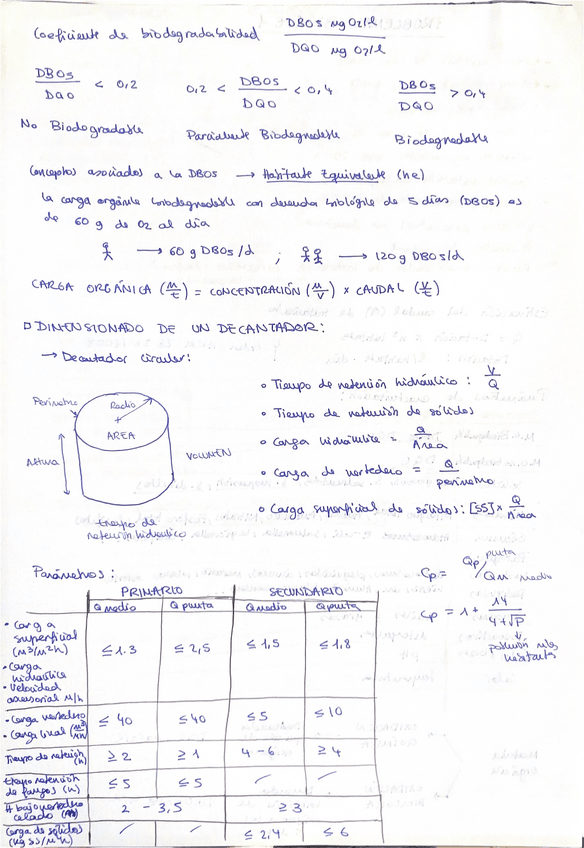 Coeficiente de biodegradabilidad DBO5 mg O2/l
DQO mg O2/l
DBO5 / DQO < 0,2
0,2 < DBO5 / DQO < 0,4
DBO5 / DQO > 0,4
No Biodegradable
Parcialmente Biodegradable
Biodegradable
Conceptos asociados a la DBO5 → Habitante Equivalente (he)
La carga orgánica biodegradable con demanda biológica de 5 días (DBO5) es
de 60 g de O2 al día
→ 60 g DBO5/d ; → 120 g DBO5/d
CARGA ORGÁNICA (M/t) = CONCENTRACIÓN (M/V) x CAUDAL (V/t)
DIMENSIONADO DE UN DECANTADOR:
→ Decantador circular:
Perímetro
Radio
+
AREA
Altura
VOLUMEN
tiempo de
retención hidráulico
• Tiempo de retención hidráulico : V/Q
• Tiempo de retención de sólidos
• Carga hidráulica = Q/Área
• Carga de vertedero = Q/perímetro
• Carga superficial de sólidos: [SS] x Q/Área
Cp = Qp punta / Qm medio
Cp = 1 + 14 / 4+√P
población miles
habitantes
Parámetros:
PRIMARIO SECUNDARIO
Q medio Q punta Q medio Q punta
• Carga
superficial
(m³/m²h)
• Carga
hidráulica
• Velocidad
ascensorial m/h
≤ 1.3 ≤ 2,5 ≤ 1,5 ≤ 1,8
• Carga vertedero
• Carga lineal (m³/mh)
≤ 40 ≤ 40 ≤ 5 ≤ 10
Tiempo de retención (h)
≥ 2 ≥ 1 4 - 6 ≥ 4
tiempo retención
de fangos (h)
≤ 5 ≤ 5 / /
H bajo vertedero
2 - 3,5 ≥ 3
Carga de sólidos
(kg SS/m²h)
/ / ≤ 2,4 ≤ 6